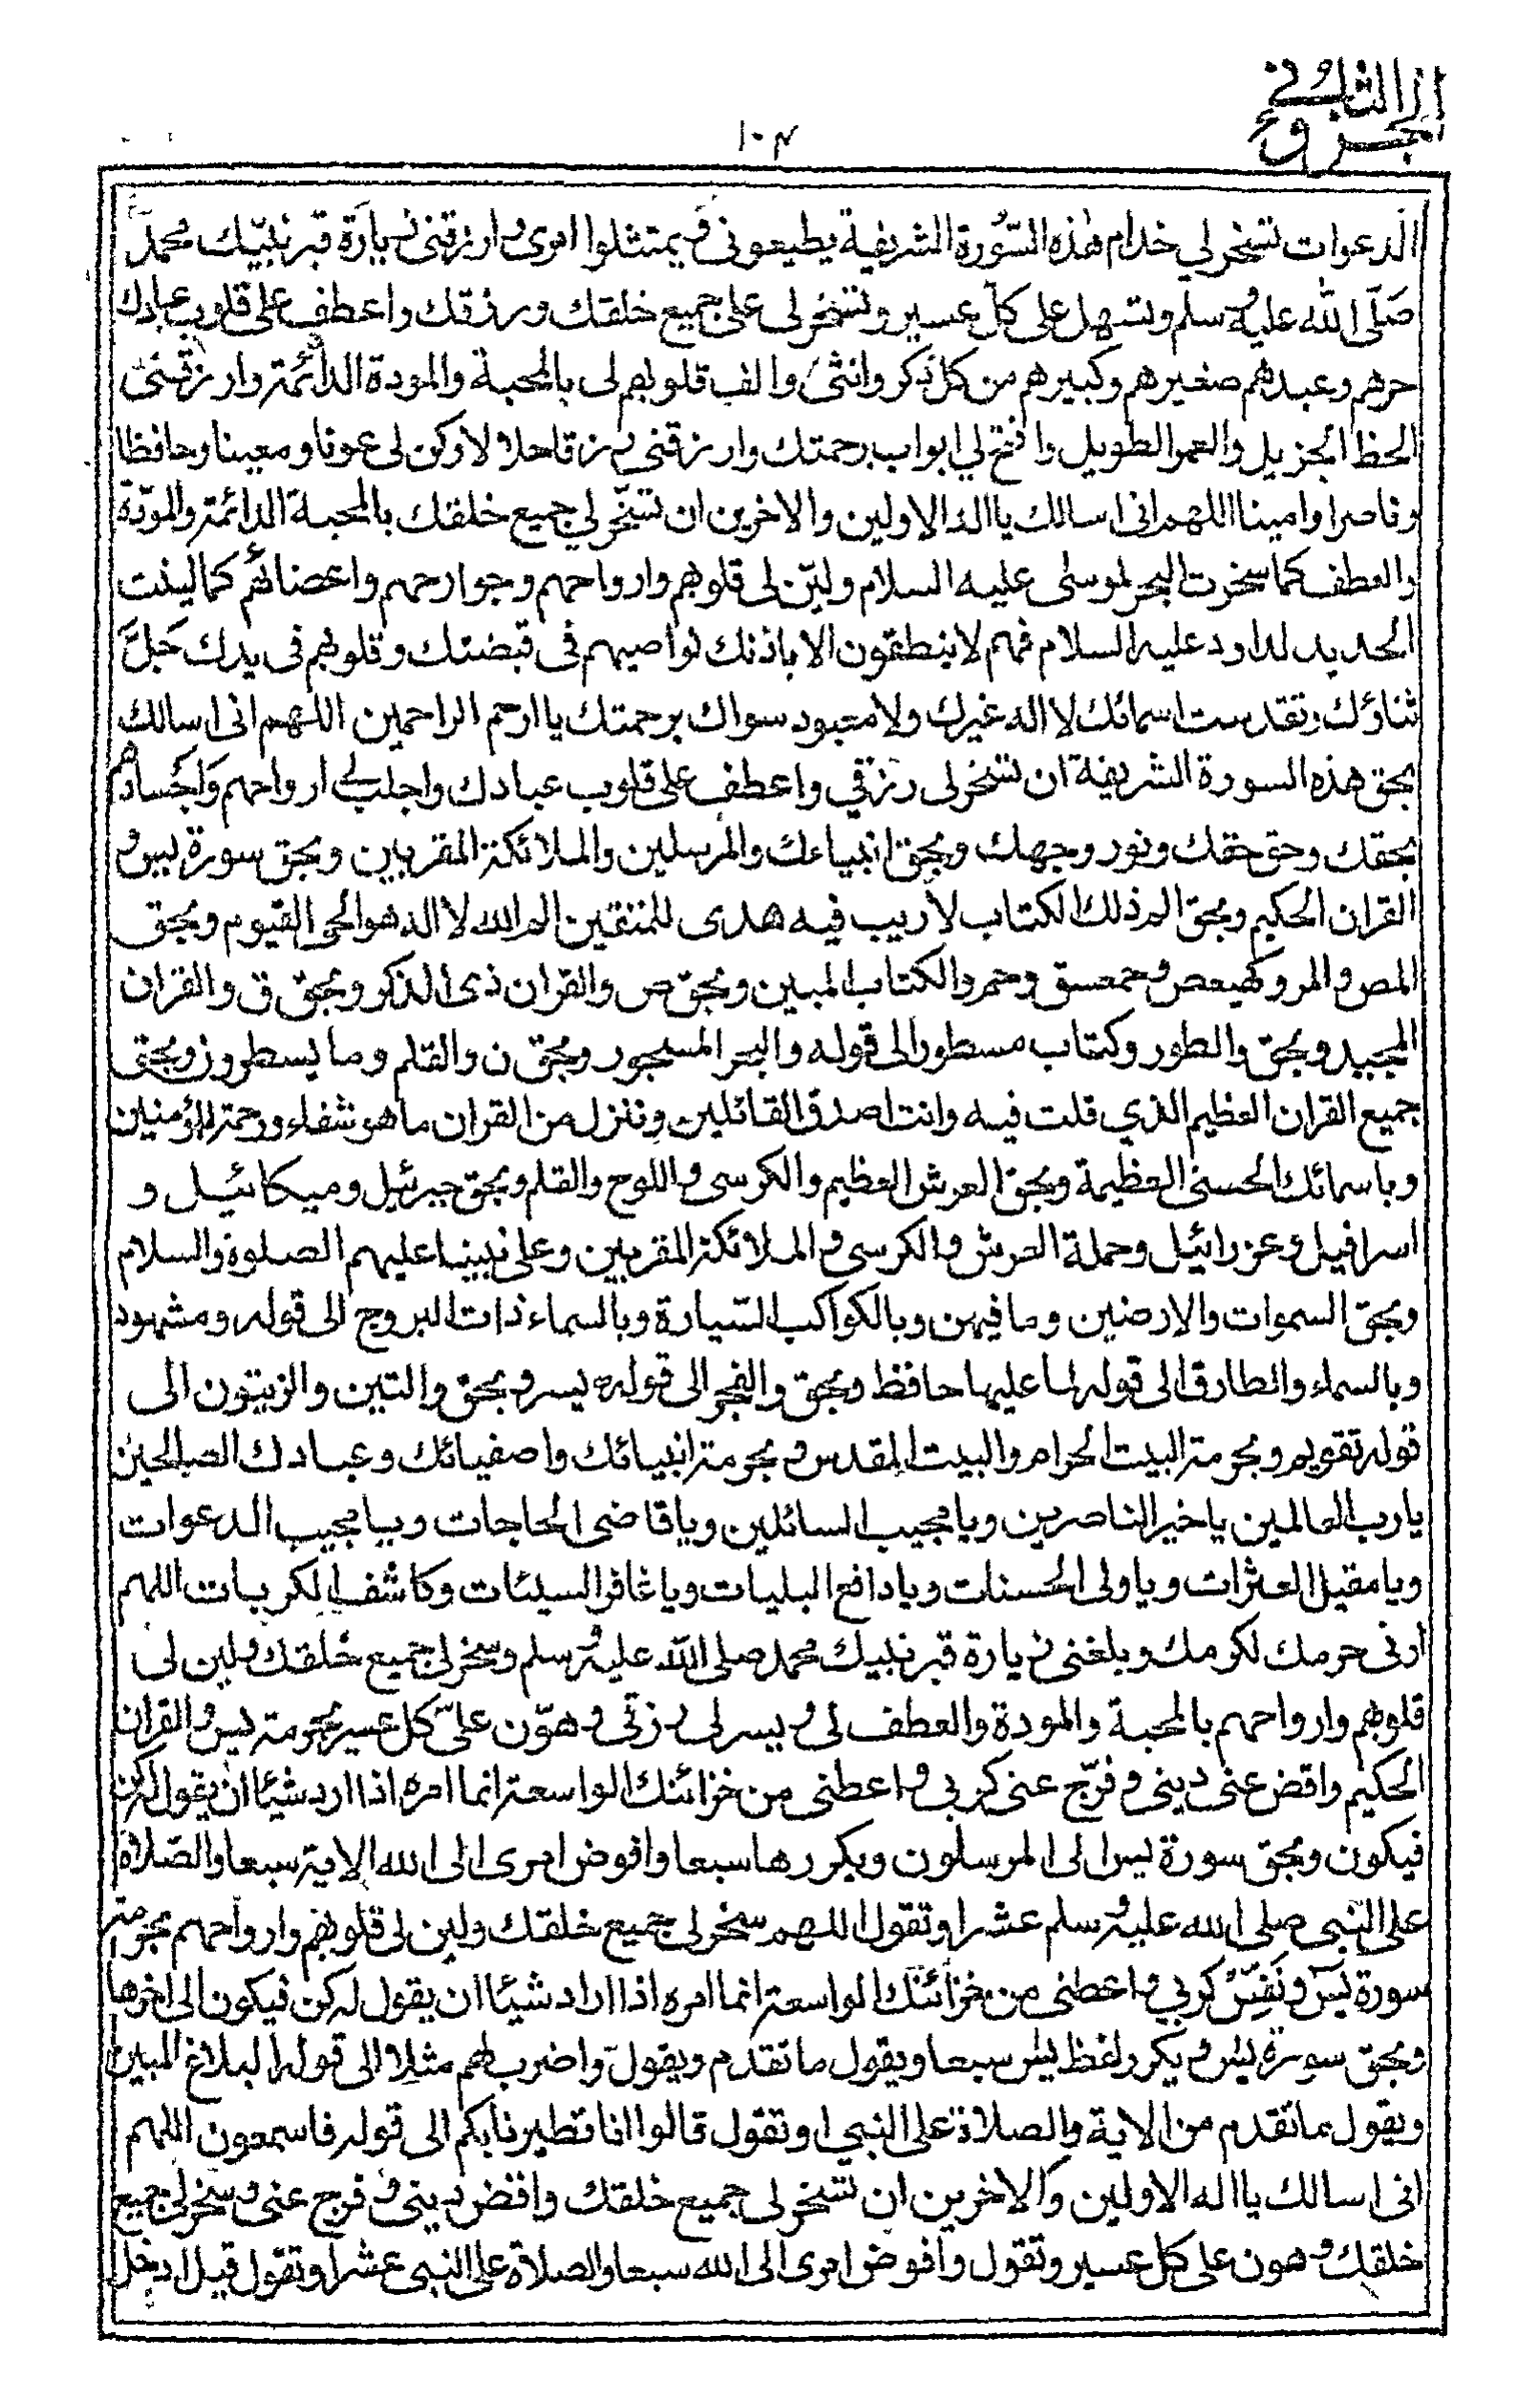 الجزء الثاني
١٠٤
الدعوات تسخر لي خدام هذه السّورة الشريفة يطيعوني ويمتثلوا امري وارزقني زيارة قبر نبيّك محمدّ
صَلّى الله عليه وسلم وتسهل على كلّ عسير وتسخر لى على جميع خلقك ورزقك واعطف على قلوب عبادك
حرهم وعبدهم صغيرهم وكبيرهم من كل ذكر وانثى والف قلوبهم لى بالمحبة والمودة الدائمة وارزقنى
الحظ الجزيل والعمر الطويل وافتح لي ابواب رحمتك وارزقنى رزقا حلالا وكن لى عونا ومعينا وحافظا
وناصرا وامينا اللهم انى اسالك يا اله الاولين والاخرين ان تسخّر لي جميع خلقك بالمحبة الدائمة والمودّة
والعطف كما سخرت البحر لموسى عليه السلام وليّن لى قلوبهم وارواحهم وجوارحهم واعضائهم كما لينت
الحديد لداود عليه السلام فهم لا ينطقون الا باذنك نواصيهم فى قبضتك وقلوبهم فى يدك جَلَّ
ثناؤك وتقدست اسمائك لا اله غيرك ولا معبود سواك برحمتك يا ارحم الراحمين اللهم انى اسالك
بحق هذه السورة الشريفة ان تسخر لى رزقي واعطف على قلوب عبادك واجلب لي ارواحهم وَاجْسادهم
بحقك وحق حقك ونور وجهك وبحق انبياءك والمرسلين والملائكة المقربين وبحق سورة يس و
القران الحكيم وبحق الم ذلك الكتاب لا ريب فيه هدى للمتقين الم الله لا اله هو الحى القيوم وبحق
المص والمر وكهيعص وحمعسق وحم والكتاب المبين وبحق ص والقران ذى الذكر وبحق ق والقران
المجيد وبحق والطور وكتاب مسطور الى قوله والبحر المسجور وبحق ن والقلم وما يسطرون وبحق
جميع القران العظيم الذي قلت فيه وانت اصدق القائلين وننزل من القران ما هو شفاء ورحمة للمؤمنين
وباسمائك الحسنى العظيمة وبحق العرش العظيم والكرسى واللوح والقلم وبحق جبرئيل وميكائيل و
اسرافيل وعزرائيل وحملة العرش والكرسى والملائكة المقربين وعلى نبينا عليهم الصلوة والسلام
وبحق السموات والارضين وما فيهن وبالكواكب السّيارة وبالسماء ذات البروج الى قوله ومشهود
وبالسماء والطارق الى قوله لما عليها حافظ وبحق والفجر الى قوله يسر وبحق والتين والزيتون الى
قوله تقويم وبحرمة البيت الحرام والبيت المقدس وبحرمة انبيائك واصفيائك وعبادك الصالحين
يا رب العالمين يا خير الناصرين ويا مجيب السائلين ويا قاضى الحاجات ويا مجيب الدعوات
ويا مقيل العثرات ويا ولى الحسنات ويا دافع البليات ويا غافر السيئات وكاشف الكربات اللهم
ارنى حرمك لكرمك وبلغنى زيارة قبر نبيك محمد صلى الله عليه وسلم وسخر لى جميع خلقك ولين لى
قلوبهم وارواحهم بالمحبة والمودة والعطف لى ويسر لى رزقى وهوّن علىّ كل عسير بحرمة يس والقران
الحكيم واقض عنى دينى وفرّج عنى كربى واعطنى من خزائنك الواسعة انما امره اذا اراد شيئا ان يقول له كن
فيكون وبحق سورة يس الى المرسلون ويكررها سبعا وافوض امرى الى الله الاية سبعا والصّلاة
على النبى صلى الله عليه وسلم عشرا وتقول اللهم سخر لى جميع خلقك ولين لى قلوبهم وارواحهم بحرمة
سورة يسٓ ونَفِّسْ كربي واعطنى من خزائنك الواسعة انما امره اذا اراد شيئا ان يقول له كن فيكون الى اخرها
وبحق سورة يس ويكرر لفظ يس سبعا ويقول ما تقدم ويقول واضرب لهم مثلا الى قوله البلاغ المبين
ويقول ما تقدم من الاية والصلاة على النبى وتقول قالوا انا تطيرنا بكم الى قوله فاسمعون اللهم
انى اسالك يا اله الاولين والاخرين ان تسخر لى جميع خلقك واقض دينى وفرج عنى وسخر لى جميع
خلقك وهون على كل عسير وتقول وافوض امرى الى الله سبعا والصلاة على النبى عشرا وتقول قيل ادخل